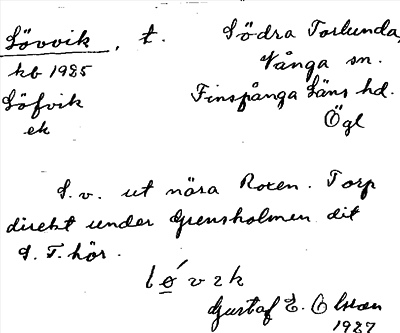 Lövvik, t. Södra Torlunda,
kb 1925 Vånga sn.
Löfvik Finspånga Läns hd.
ek Ögl
S.v. ut nära Roxen. Torp
direkt under Grensholmen dit
S. T. hör.
löv ɩk
Gustaf E. Olsson
1927